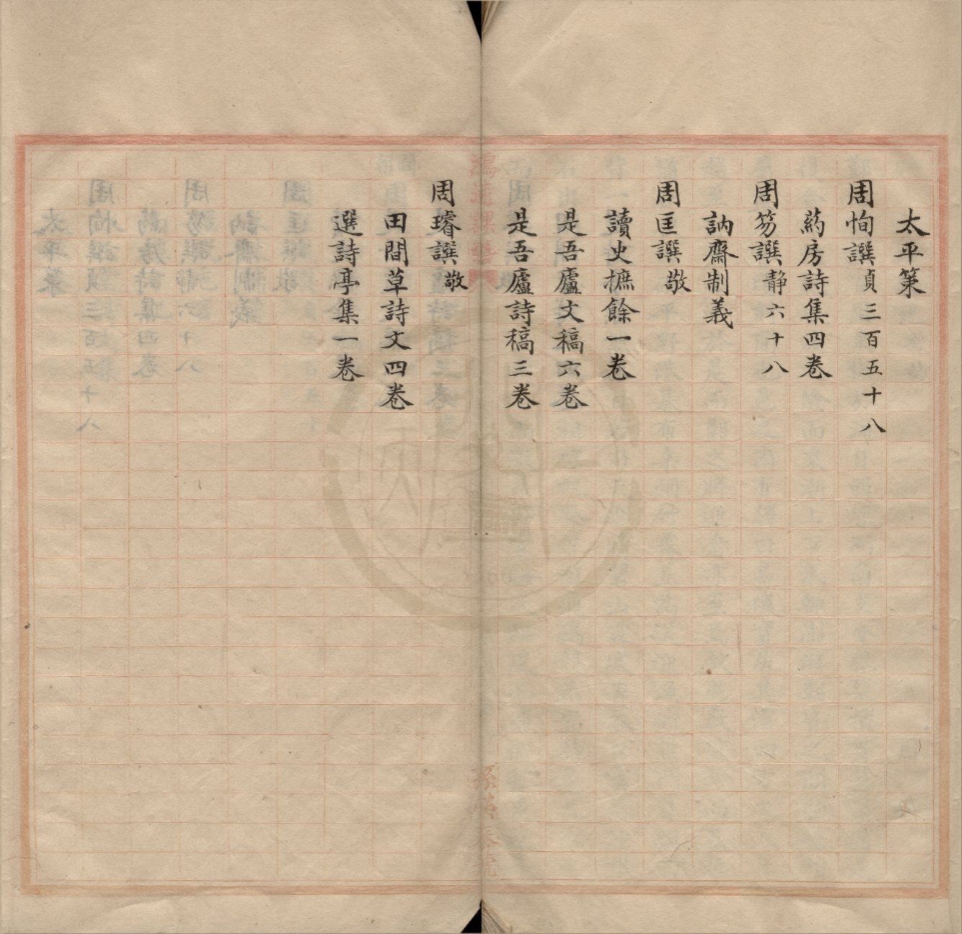 太平策
周恂譔貞三百五十八
葯房詩集四卷
周笏譔靜六十八
訥齋制義
周匡譔敬
讀史摭餘一卷
是吾廬文稿六卷
是吾廬詩稿三卷
周璿譔敬
田間草詩文四卷
選詩亭集一卷